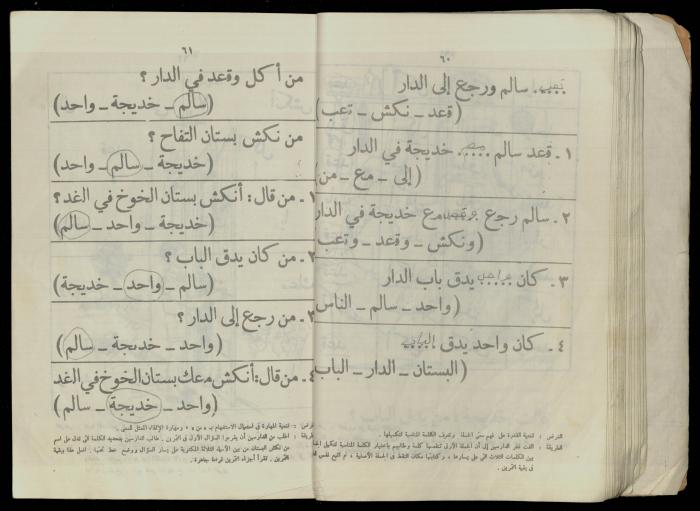 ٦٠
تعب سالم ورجع إلى الدار
(قعد - نكش - تعب)
١. قعد سالم مع خديجة في الدار
(إلى - مع - من)
٢. سالم رجع وقعد مع خديجة في الدار
(ونكش - وقعد - وتعب)
٣. كان واحد يدق باب الدار
(واحد - سالم - الناس)
٤. كان واحد يدق الباب
(البستان - الدار - الباب)
٦١
من أكل وقعد في الدار ؟
(سالم - خديجة - واحد)
من نكش بستان التفاح ؟
(خديجة - سالم - واحد)
١. من قال: أنكش بستان الخوخ في الغد؟
(خديجة - واحد - سالم)
٢. من كان يدق الباب ؟
(سالم - واحد - خديجة)
٣. من رجع إلى الدار ؟
(واحد - خديجة - سالم)
٤. من قال: أنكش معك بستان الخوخ في الغد
(واحد - خديجة - سالم)